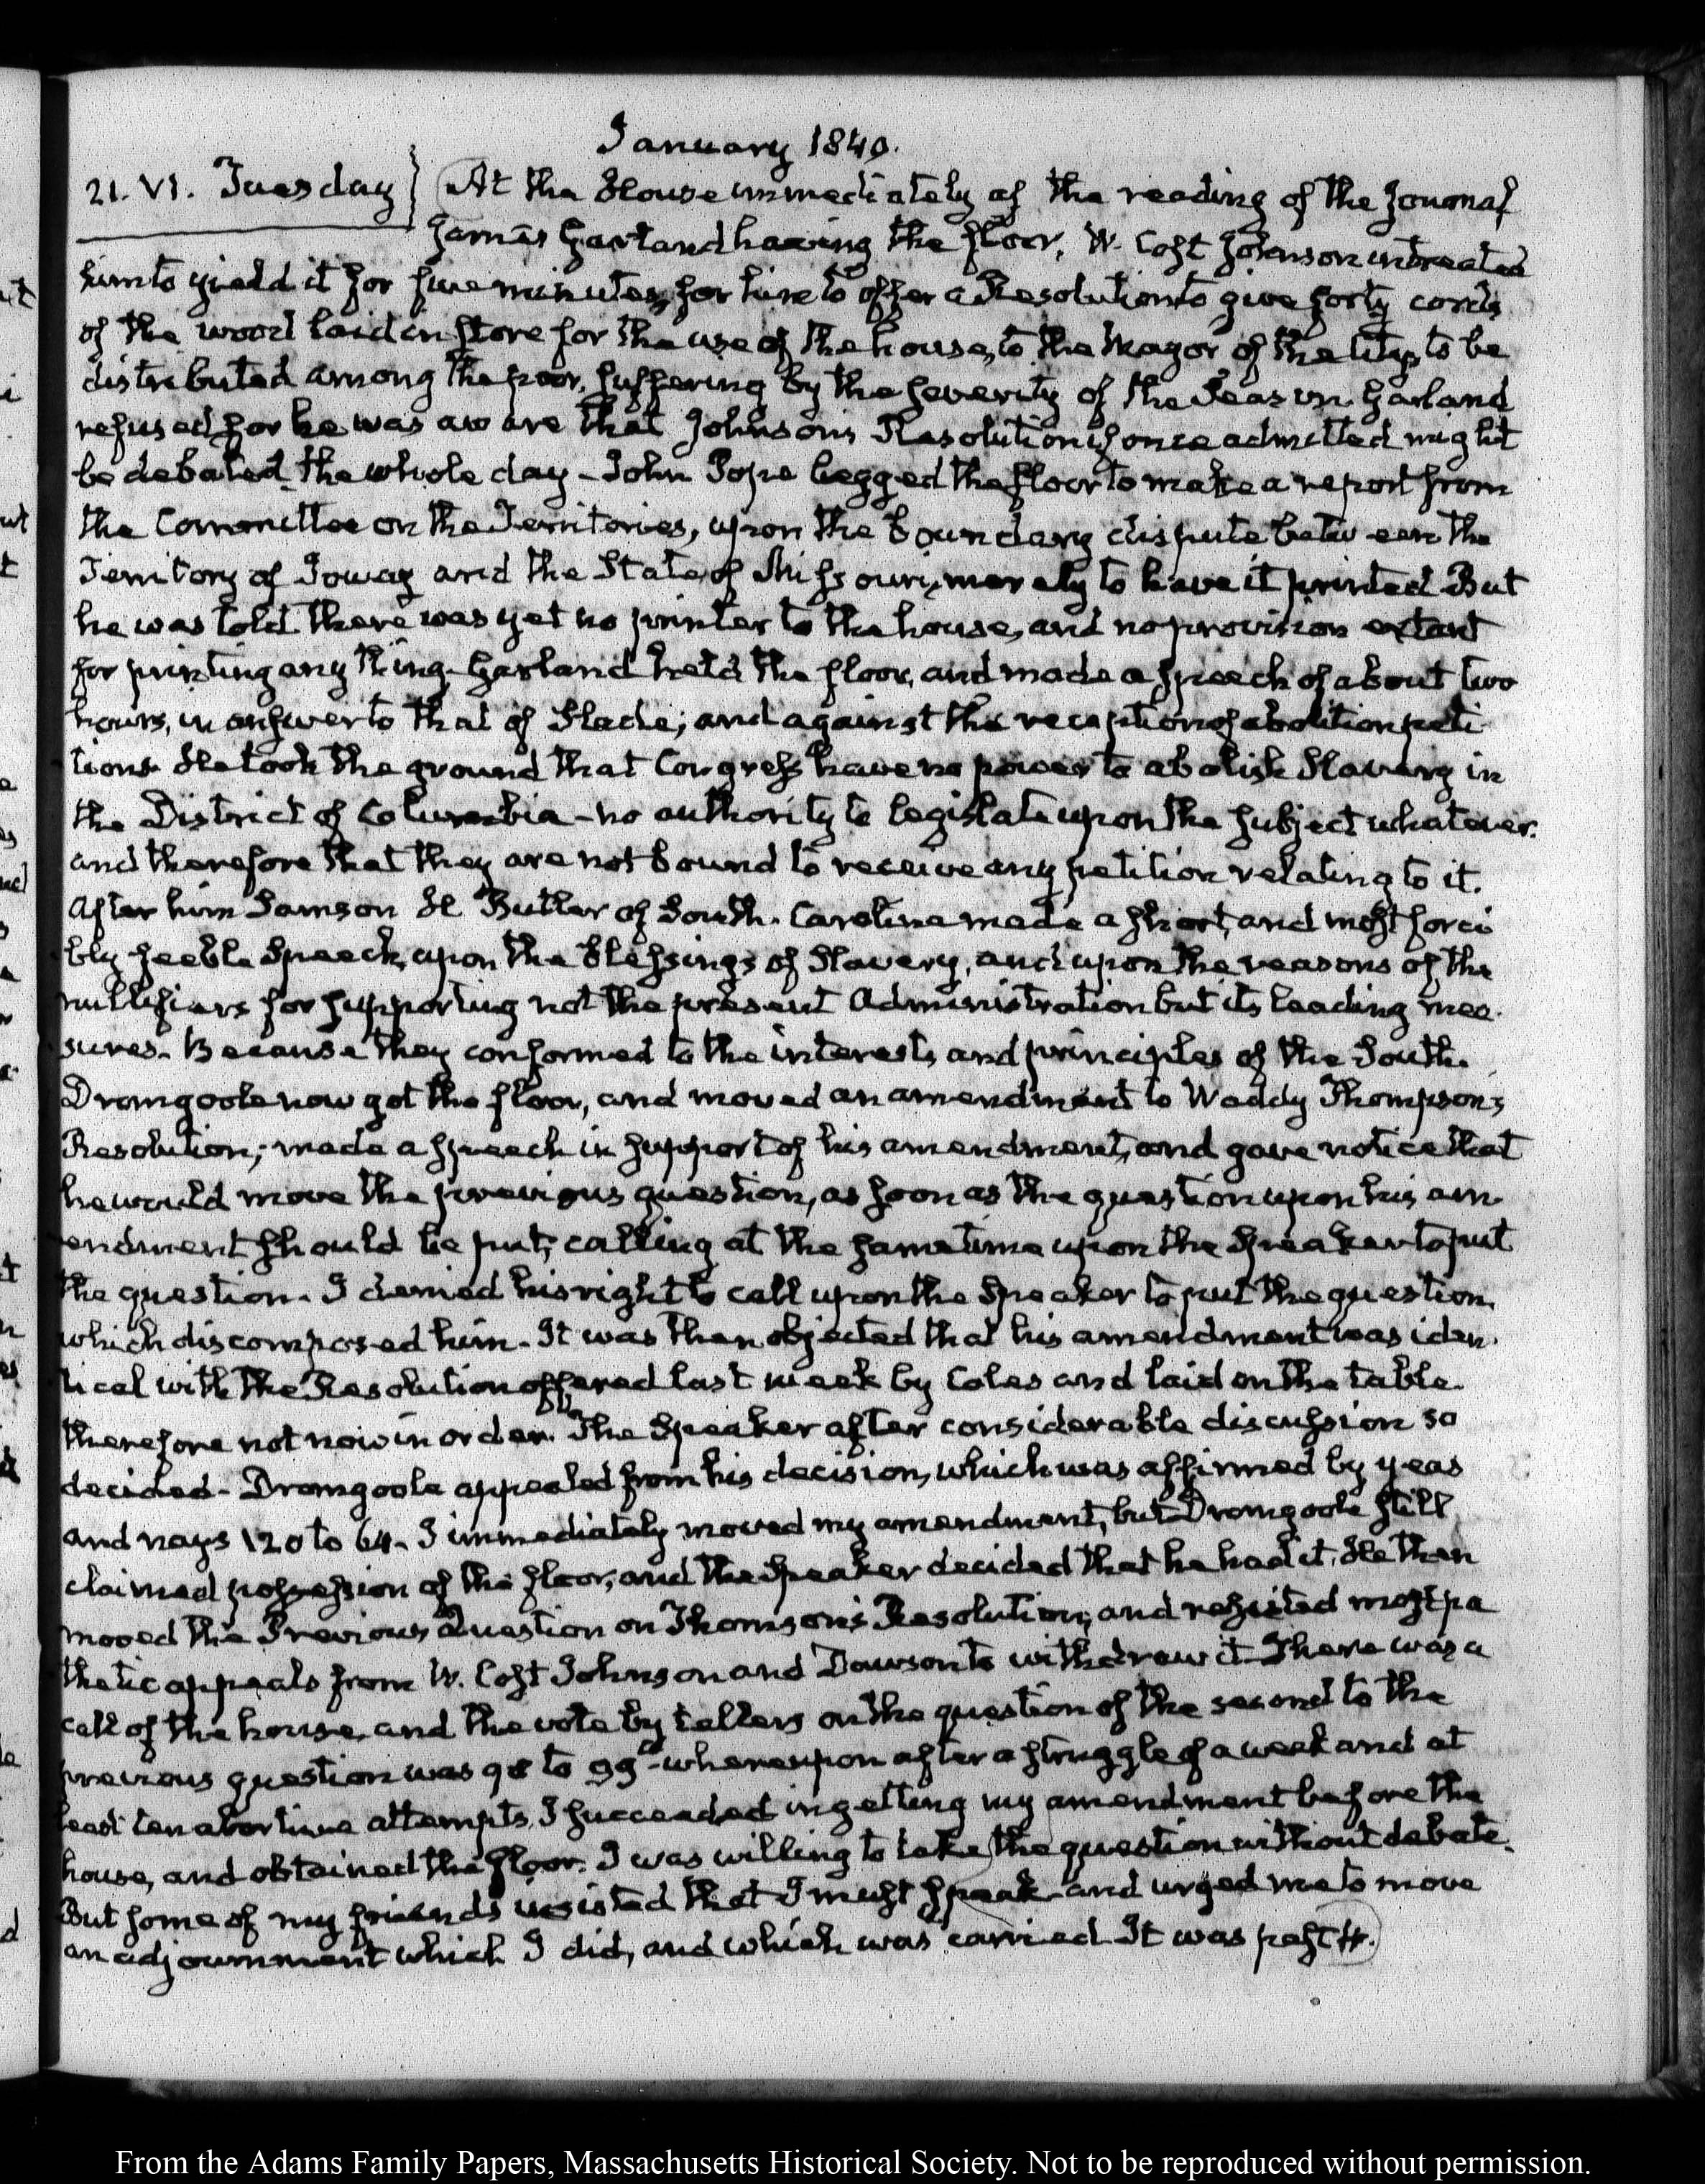 January 1840.
21. VI. Tuesday} At the House immediately of the reading of the Journal
James Garland having the floor, W. Cost Johnson intreated
him to yield it for five minutes, for him to offer a Resolution to give forty cords
of the wood laid in store for the use of the house, to the Mayor of the City, to be
distributed among the poor, suffering by the severity of the Season. Garland
refused for he was aware that Johnson's Resolution if once admitted might
be debated the whole day - John Pope begged the floor to make a report from
the Committee on the Territories, upon the boundary dispute between the
Territory of Ioway and the State of Missouri, merely to have it printed But
he was told there was yet no printer to the house, and no provision extant
for printing any thing - Garland held the floor, and made a speech of about two
hours, in answer to that of Slade; and against the reception of abolition peti-
tions He took the ground that Congress have no power to abolish Slavery in
the District of Columbia - no authority to legislate upon the subject whatever.
and therefore that they are not bound to receive any petition relating to it.
After him Samson H Butler of South-Carolina made a short, and most forci
bly feeble Speech, upon the blessings of Slavery, and upon the reasons of the
nullifiers for supporting not the present Administration but its leading mea-
sures. Because they conformed to the interests and principles of the South.
Dromgoole now got the floor, and moved an amendment to Waddy Thompson's
Resolution; made a speech in support of his amendment, and gave notice that
he would move the previous question, as soon as the question upon his am-
endment should be put; calling at the same time upon the Speaker to put
the question. I denied his right to call upon the Speaker to put the question,
which discomposed him. It was then objected that his amendment was iden-
tical with the Resolution offered last week by Coles and laid on the table.
therefore not now in order. The Speaker after considerable discussion so
decided - Dromgoole appealed from his decision, which was affirmed by yeas
and nays 120 to 64. I immediately moved my amendment, but Dromgoole still
claimed possession of the floor, and the Speaker decided that he had it. He then
moved the Previous Question on Thomson's Resolution; and resisted most pa
thetic appeals from W. Cost Johnson and Dawson to withdraw it There was a
call of the house, and the vote by tellers on the question of the second to the
previous question was to 99 - whereupon after a struggle of a week and at
least ten abortive attempts, I succeeded in getting my amendment before the
house, and obtained the floor. I was willing to take the question without debate.
But some of my friends insisted that I must speak and urged me to move
an adjournment which I did, and which was carried. It was past 4.
From the Adams Family Papers, Massachusetts Historical Society. Not to be reproduced without permission.